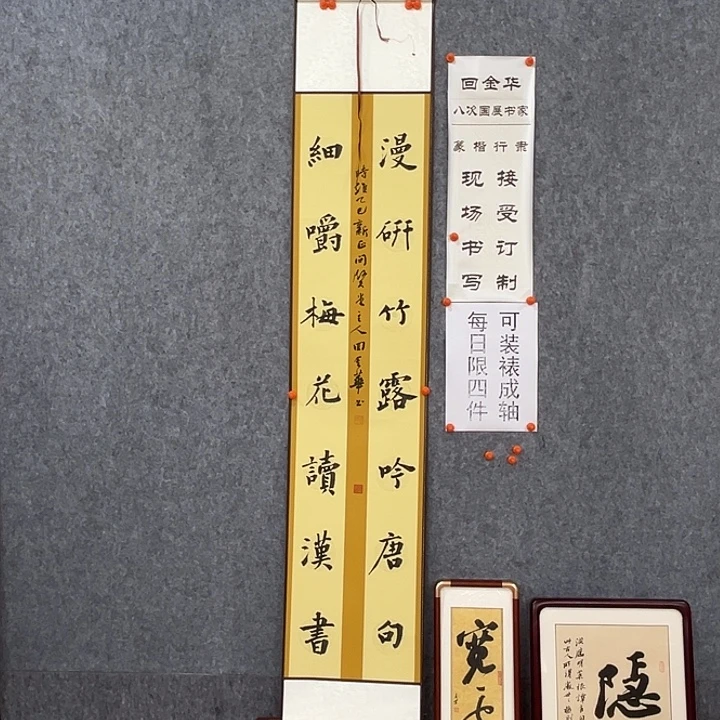 漫研竹露吟唐句
細嚼梅花讀漢書
時維乙巳新正問賢堂主人回金華書
回金华
八次国展书家
篆楷行隶
接受订制
现场书写
可装裱成轴
每日限四件
寬
隱